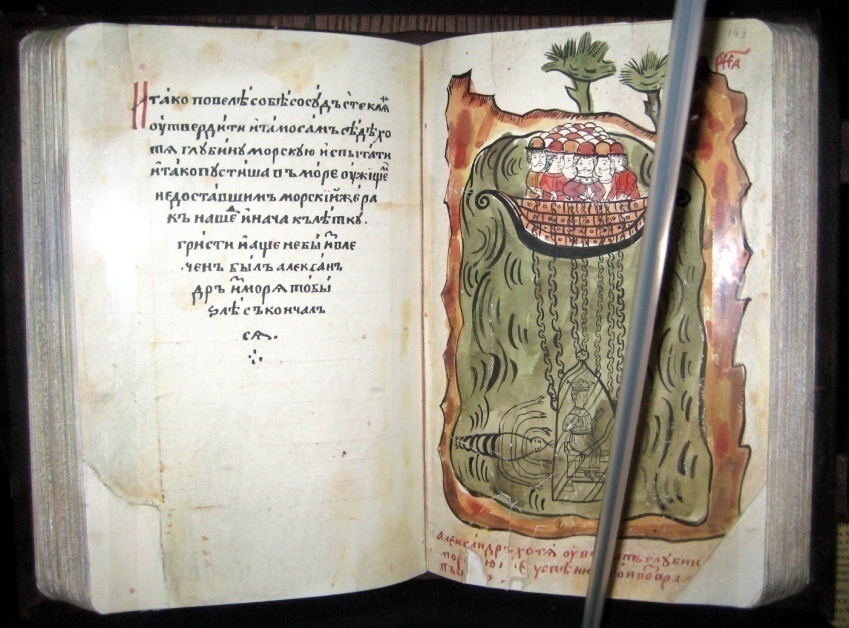 И тако повелѣ собѣ сосꙋдъ стеклѧⷩ
оутвердити и тамо самъ сѣдѣ хо
тѧ глꙋбинꙋ морскꙋю испытати
и тако пꙋстиша въ море оужищеⷨ
недоставшимъ морскїй же ра
къ нашеⷣ и нача клѣткꙋ.
гристи и аще не бы иⷥвле
ченъ былъ алексанъ
дръ иⷥ морѧ то бы
ѕлѣ съкончалъ
сѧ.
Александръ хотѧ глꙋбин